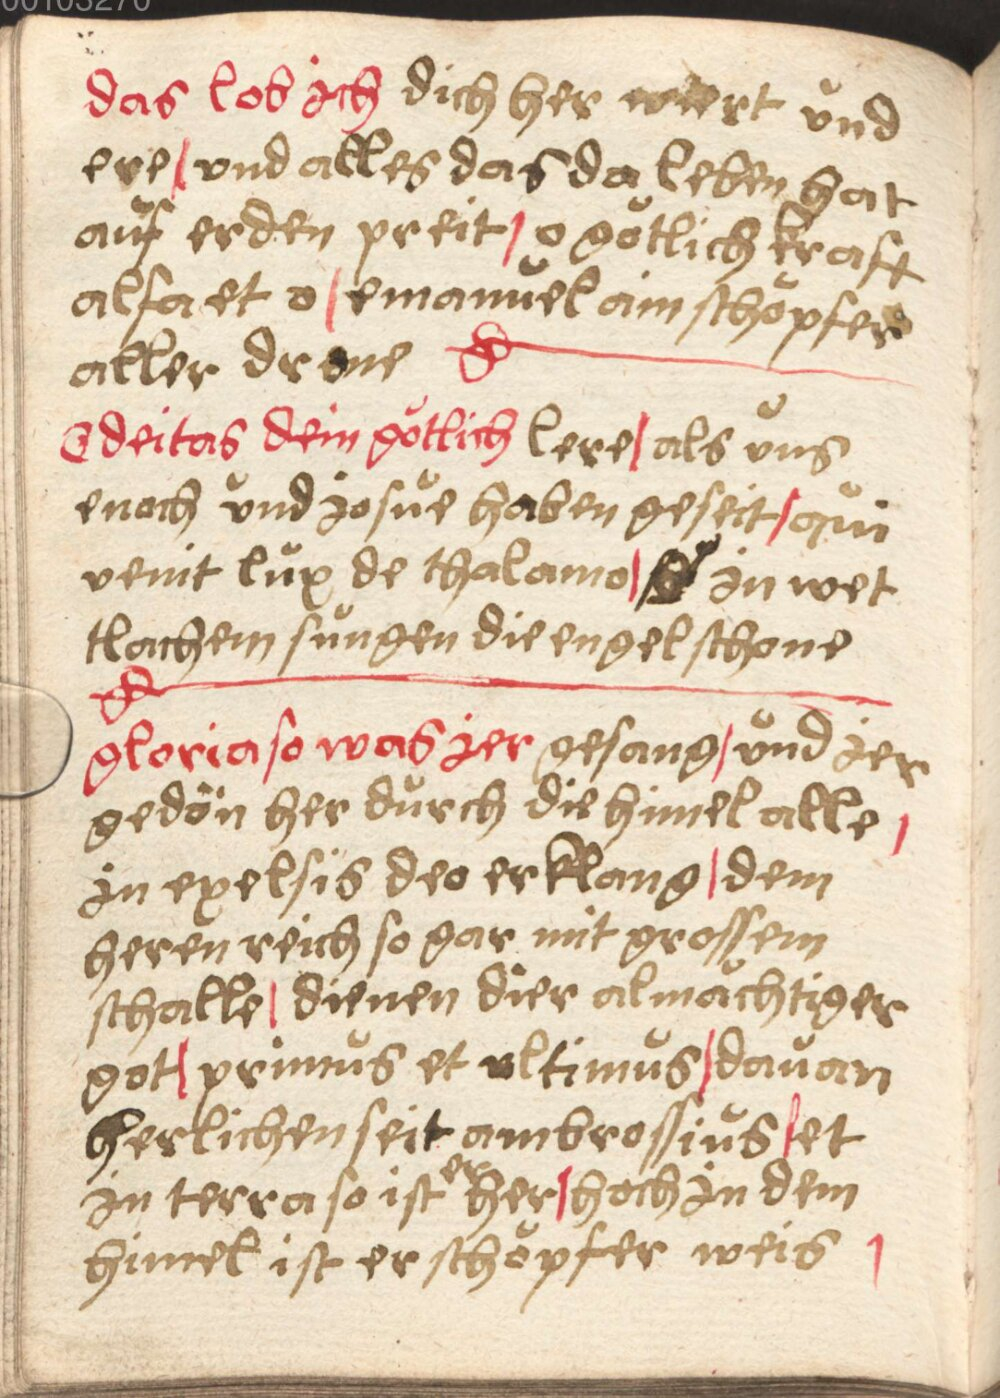 00103270
das lob jch dich her wert vnd
ere / vnd alles das da leben hat
auf erden preit / o götlich kraft
alfa et o / emanuel ain schöpfer
aller drone
O deitas dein götlich lere / als vns
enoch vnd josue haben geseit / quи
venit lux de thalamo / jn wet
tlachem sungen die engel schone
gloria so was jer gesang / vnd jer
gedön her durch die himel alle /
jn exelsis deo erklang / dem
heren reich so gar mit grossem
schalle / dienen dier almächtiger
got / primus et ultimus / dauan
herlichen seit ambrossius / et
jn terra so ist er her / hoch jn dem
himel ist er schöpfer weis /